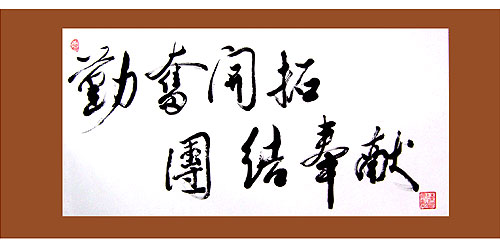 勤奮開拓
團结奉献